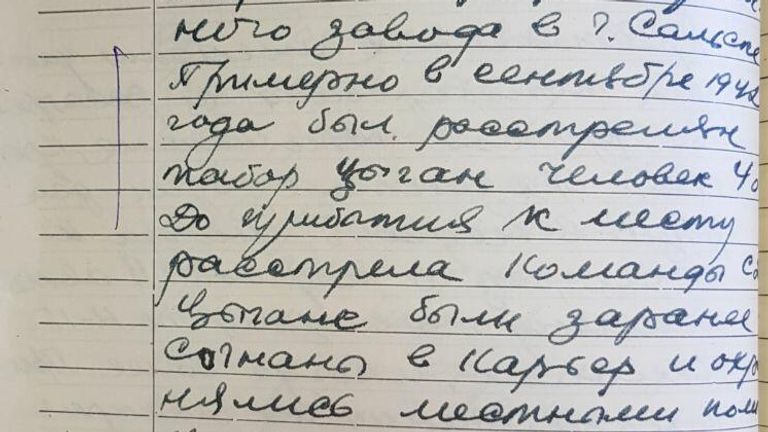 ного завода в г. Сальске
Примерно в сентябре 1942
года был расстрелян
табор цыган человек 40
До прибытия к месту
расстрела команды
цыгане были заране
согнаны в карьер и охра
нялись местными поли